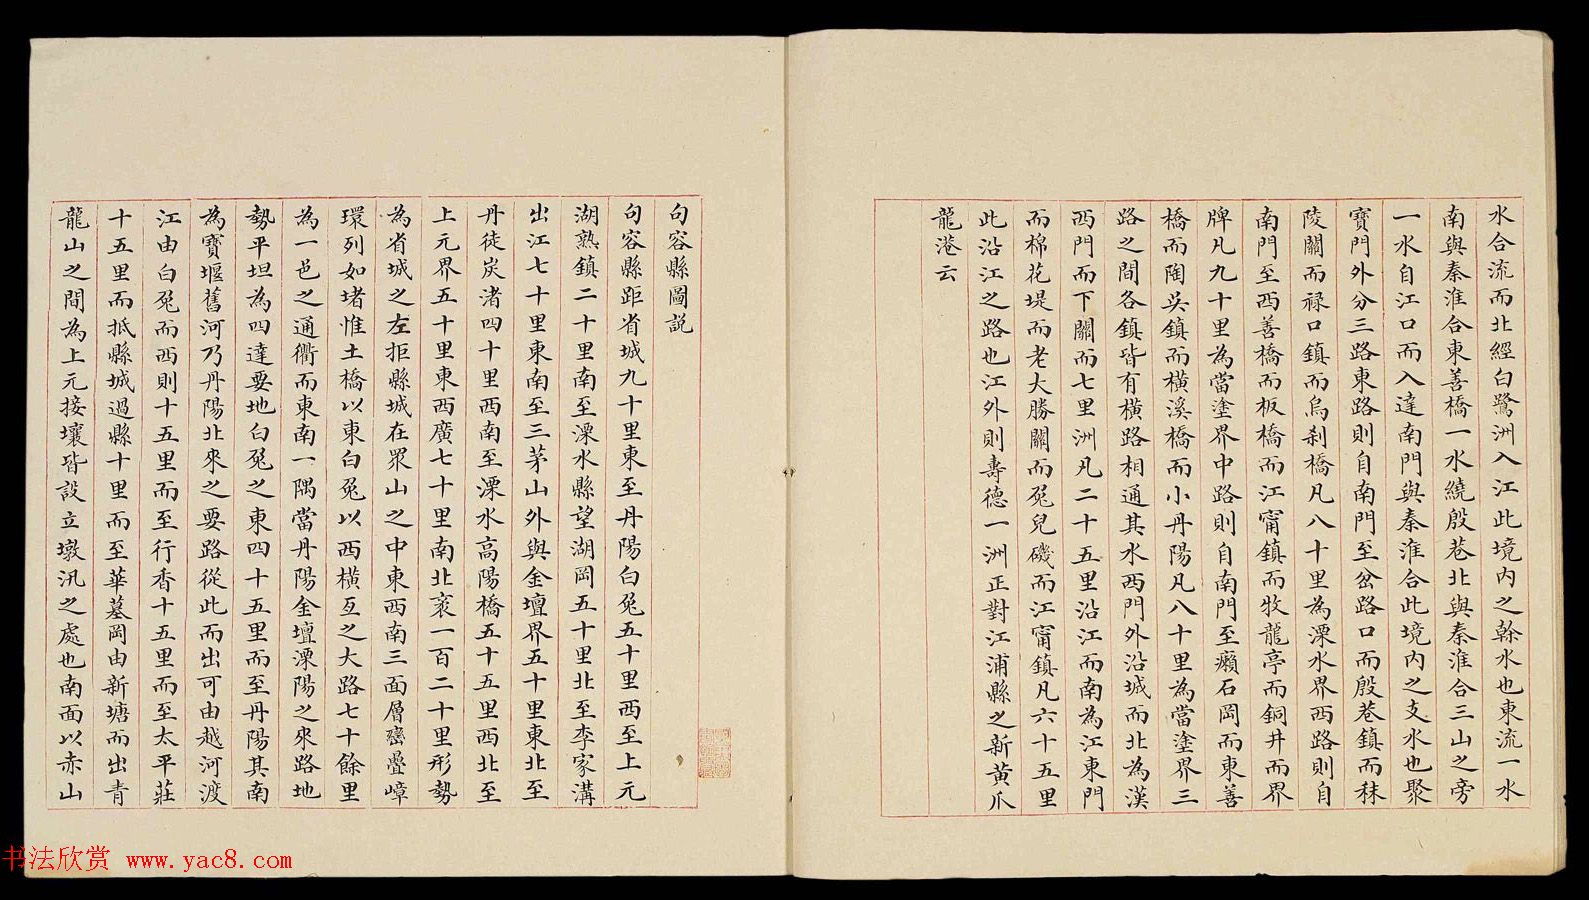 水合流而北經白鷺洲入江此境內之幹水也東流一水
南與秦淮合東善橋一水繞殷巷北與秦淮合三山之旁
一水自江口而入達南門與秦淮合此境內之支水也聚
寶門外分三路東路則自南門至岔路口而殷巷鎮而秣
陵關而祿口鎮而烏刹橋凡八十里為溧水界西路則自
南門至西善橋而板橋而江甯鎮而牧龍亭而銅井而界
牌凡九十里為當塗界中路則自南門至癩石岡而東善
橋而陶吳鎮而橫溪橋而小丹陽凡八十里為當塗界三
路之間各鎮皆有橫路相通其水西門外沿城而北為漢
西門而下關而七里洲凡二十五里沿江而南為江東門
而棉花堤而老大勝關而兔兒磯而江甯鎮凡六十五里
此沿江之路也江外則壽德一洲正對江浦縣之新黃爪
龍港云
句容縣圖說
句容縣距省城九十里東至丹陽白兔五十里西至上元
湖熟鎮二十里南至溧水縣望湖岡五十里北至李家溝
出江七十里東南至三茅山外與金壇界五十里東北至
丹徒炭渚四十里西南至溧水高陽橋五十五里西北至
上元界五十里東西廣七十里南北袤一百二十里形勢
為省城之左拒縣城在眾山之中東西南三面層巒疊嶂
環列如堵惟土橋以東白兔以西橫亙之大路七十餘里
為一邑之通衢而東南一隅當丹陽金壇溧陽之來路地
勢平坦為四達要地白兔之東四十五里而至丹陽其南
為寶堰舊河乃丹陽北來之要路從此而出可由越河渡
江由白兔而西則十五里而至行香十五里而至太平莊
十五里而抵縣城過縣十里而至華墓岡由新塘而出青
龍山之間為上元接壤皆設立墩汛之處也南面以赤山
书法欣赏 www.yac8.com